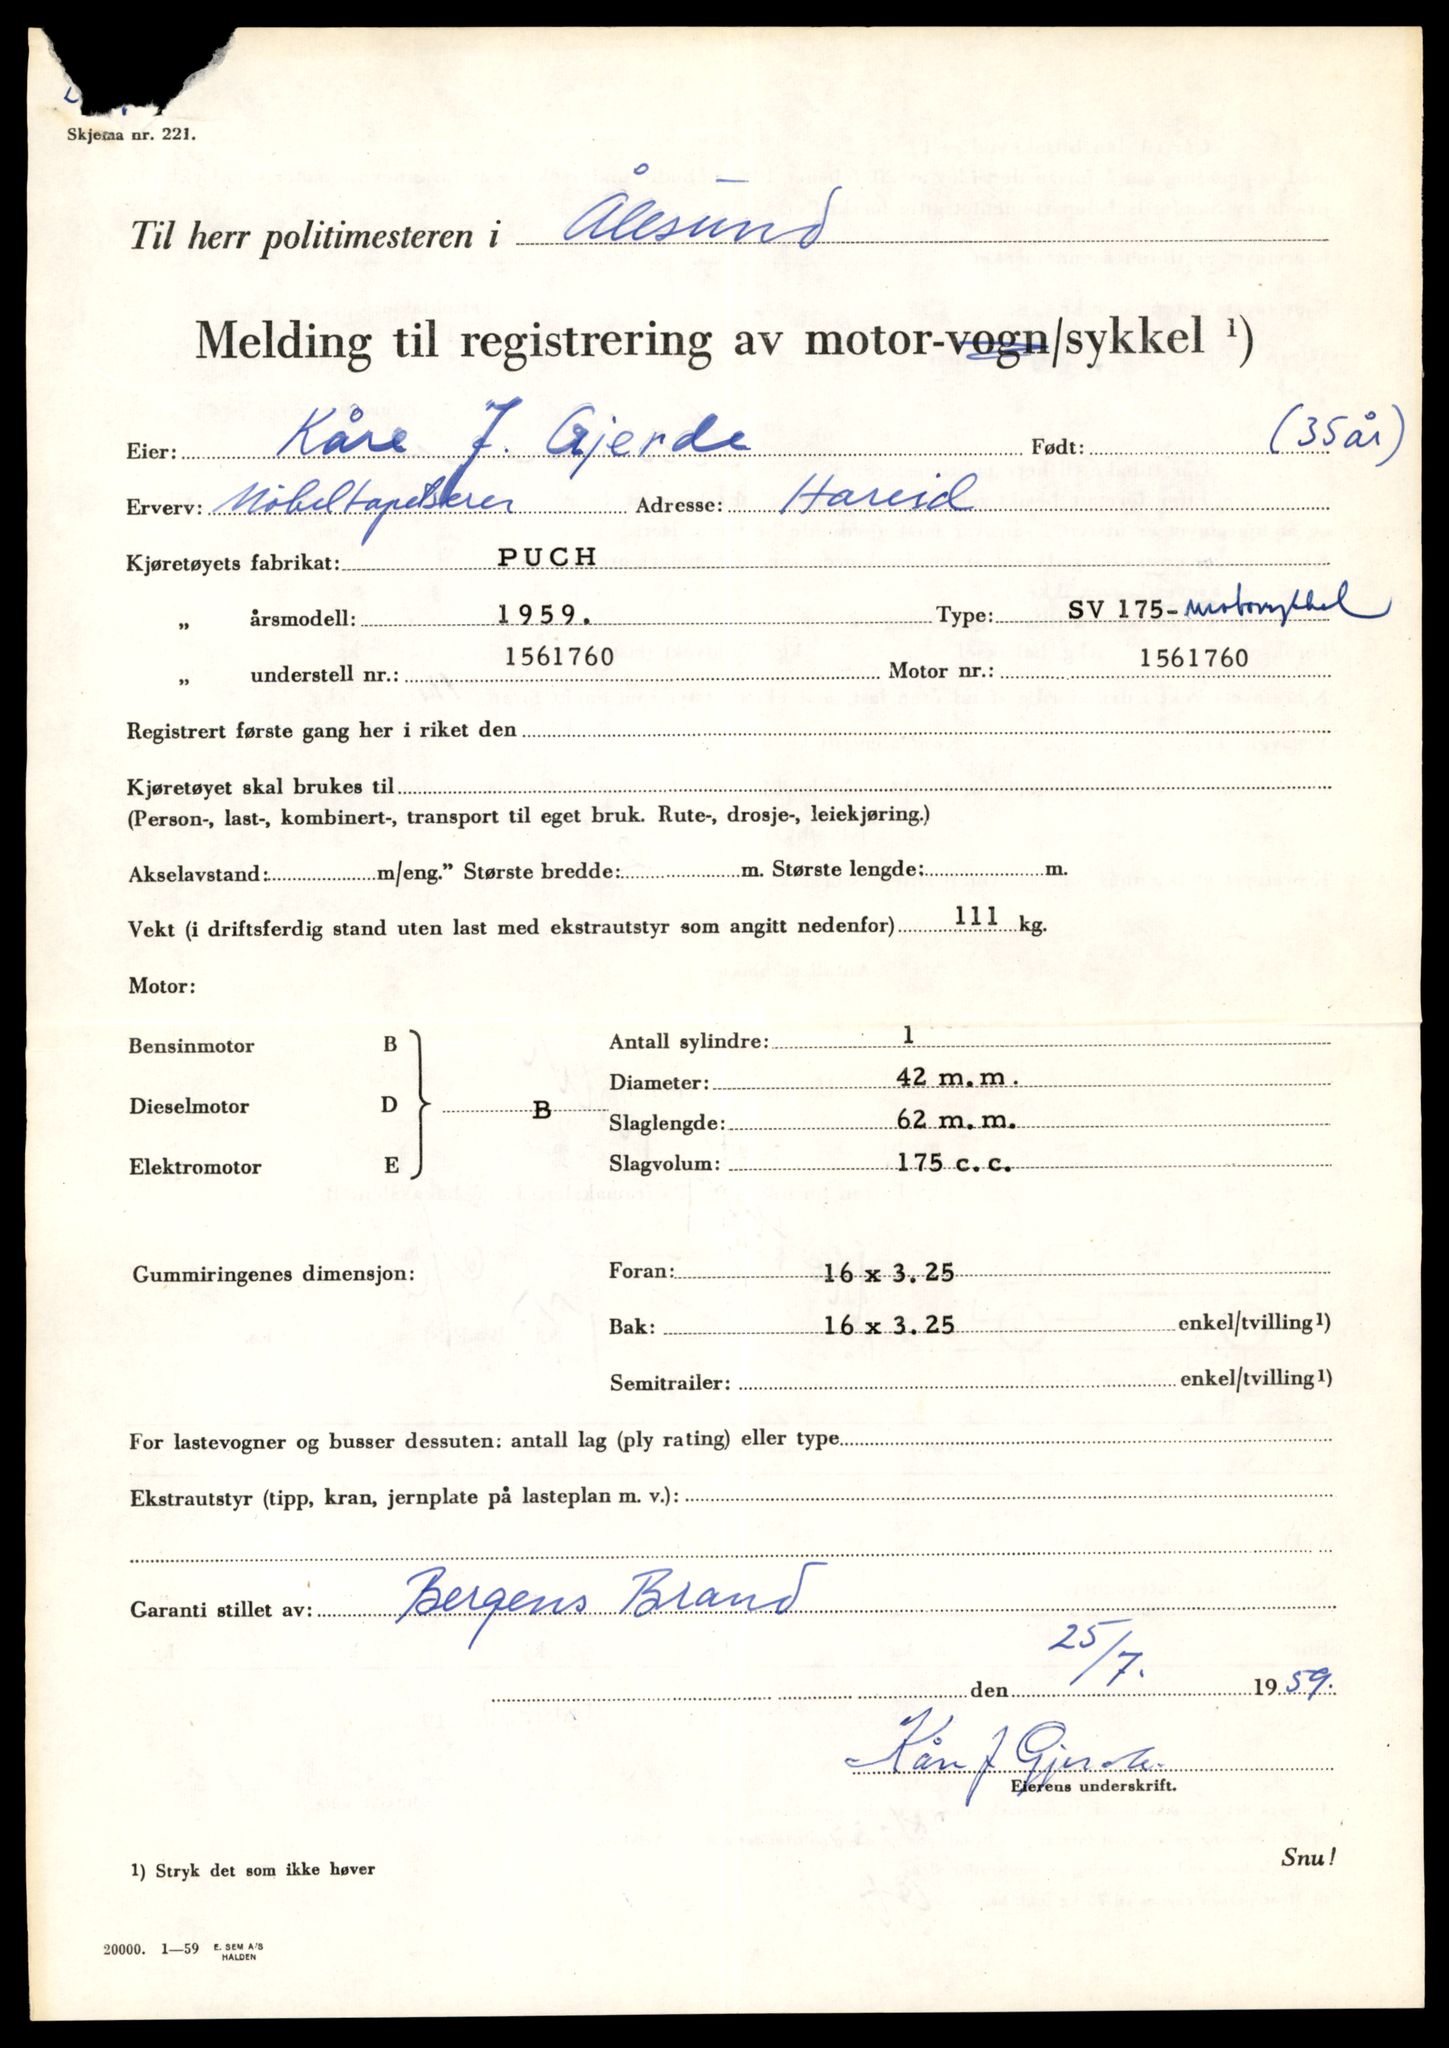 Skjema nr. 221.
Til herr politimesteren i Ålesund
Melding til registrering av motor-vogn/sykkel ¹)
Eier: Kåre J. Gjerde Født: (35 år)
Erverv: Møbeltapetserer Adresse: Hareid
Kjøretøyets fabrikat: PUCH
„ årsmodell: 1959. Type: SV 175- Motorsykkel
„ understell nr.: 1561760 Motor nr.: 1561760
Registrert første gang her i riket den
Kjøretøyet skal brukes til
(Person-, last-, kombinert-, transport til eget bruk. Rute-, drosje-, leiekjøring.)
Akselavstand: m/eng.” Største bredde: m. Største lengde: m.
Vekt (i driftsferdig stand uten last med ekstrautstyr som angitt nedenfor) 111 kg.
Motor:
Bensinmotor B Antall sylindre: 1
Diameter: 42 m.m.
Dieselmotor D B
Slaglengde: 62 m.m.
Elektromotor E Slagvolum: 175 c.c.
Gummiringenes dimensjon: Foran: 16 x 3.25
Bak: 16 x 3.25 enkel/tvilling¹)
Semitrailer: enkel/tvilling¹)
For lastevogner og busser dessuten: antall lag (ply rating) eller type
Ekstrautstyr (tipp, kran, jernplate på lasteplan m. v.):
Garanti stillet av: Bergens Brand
den 25/7. 1959.
Kåre J Gjerde
Eierens underskrift.
Snu!
1) Stryk det som ikke høver
20000. 1—59 E. SEM A/S
HALDEN